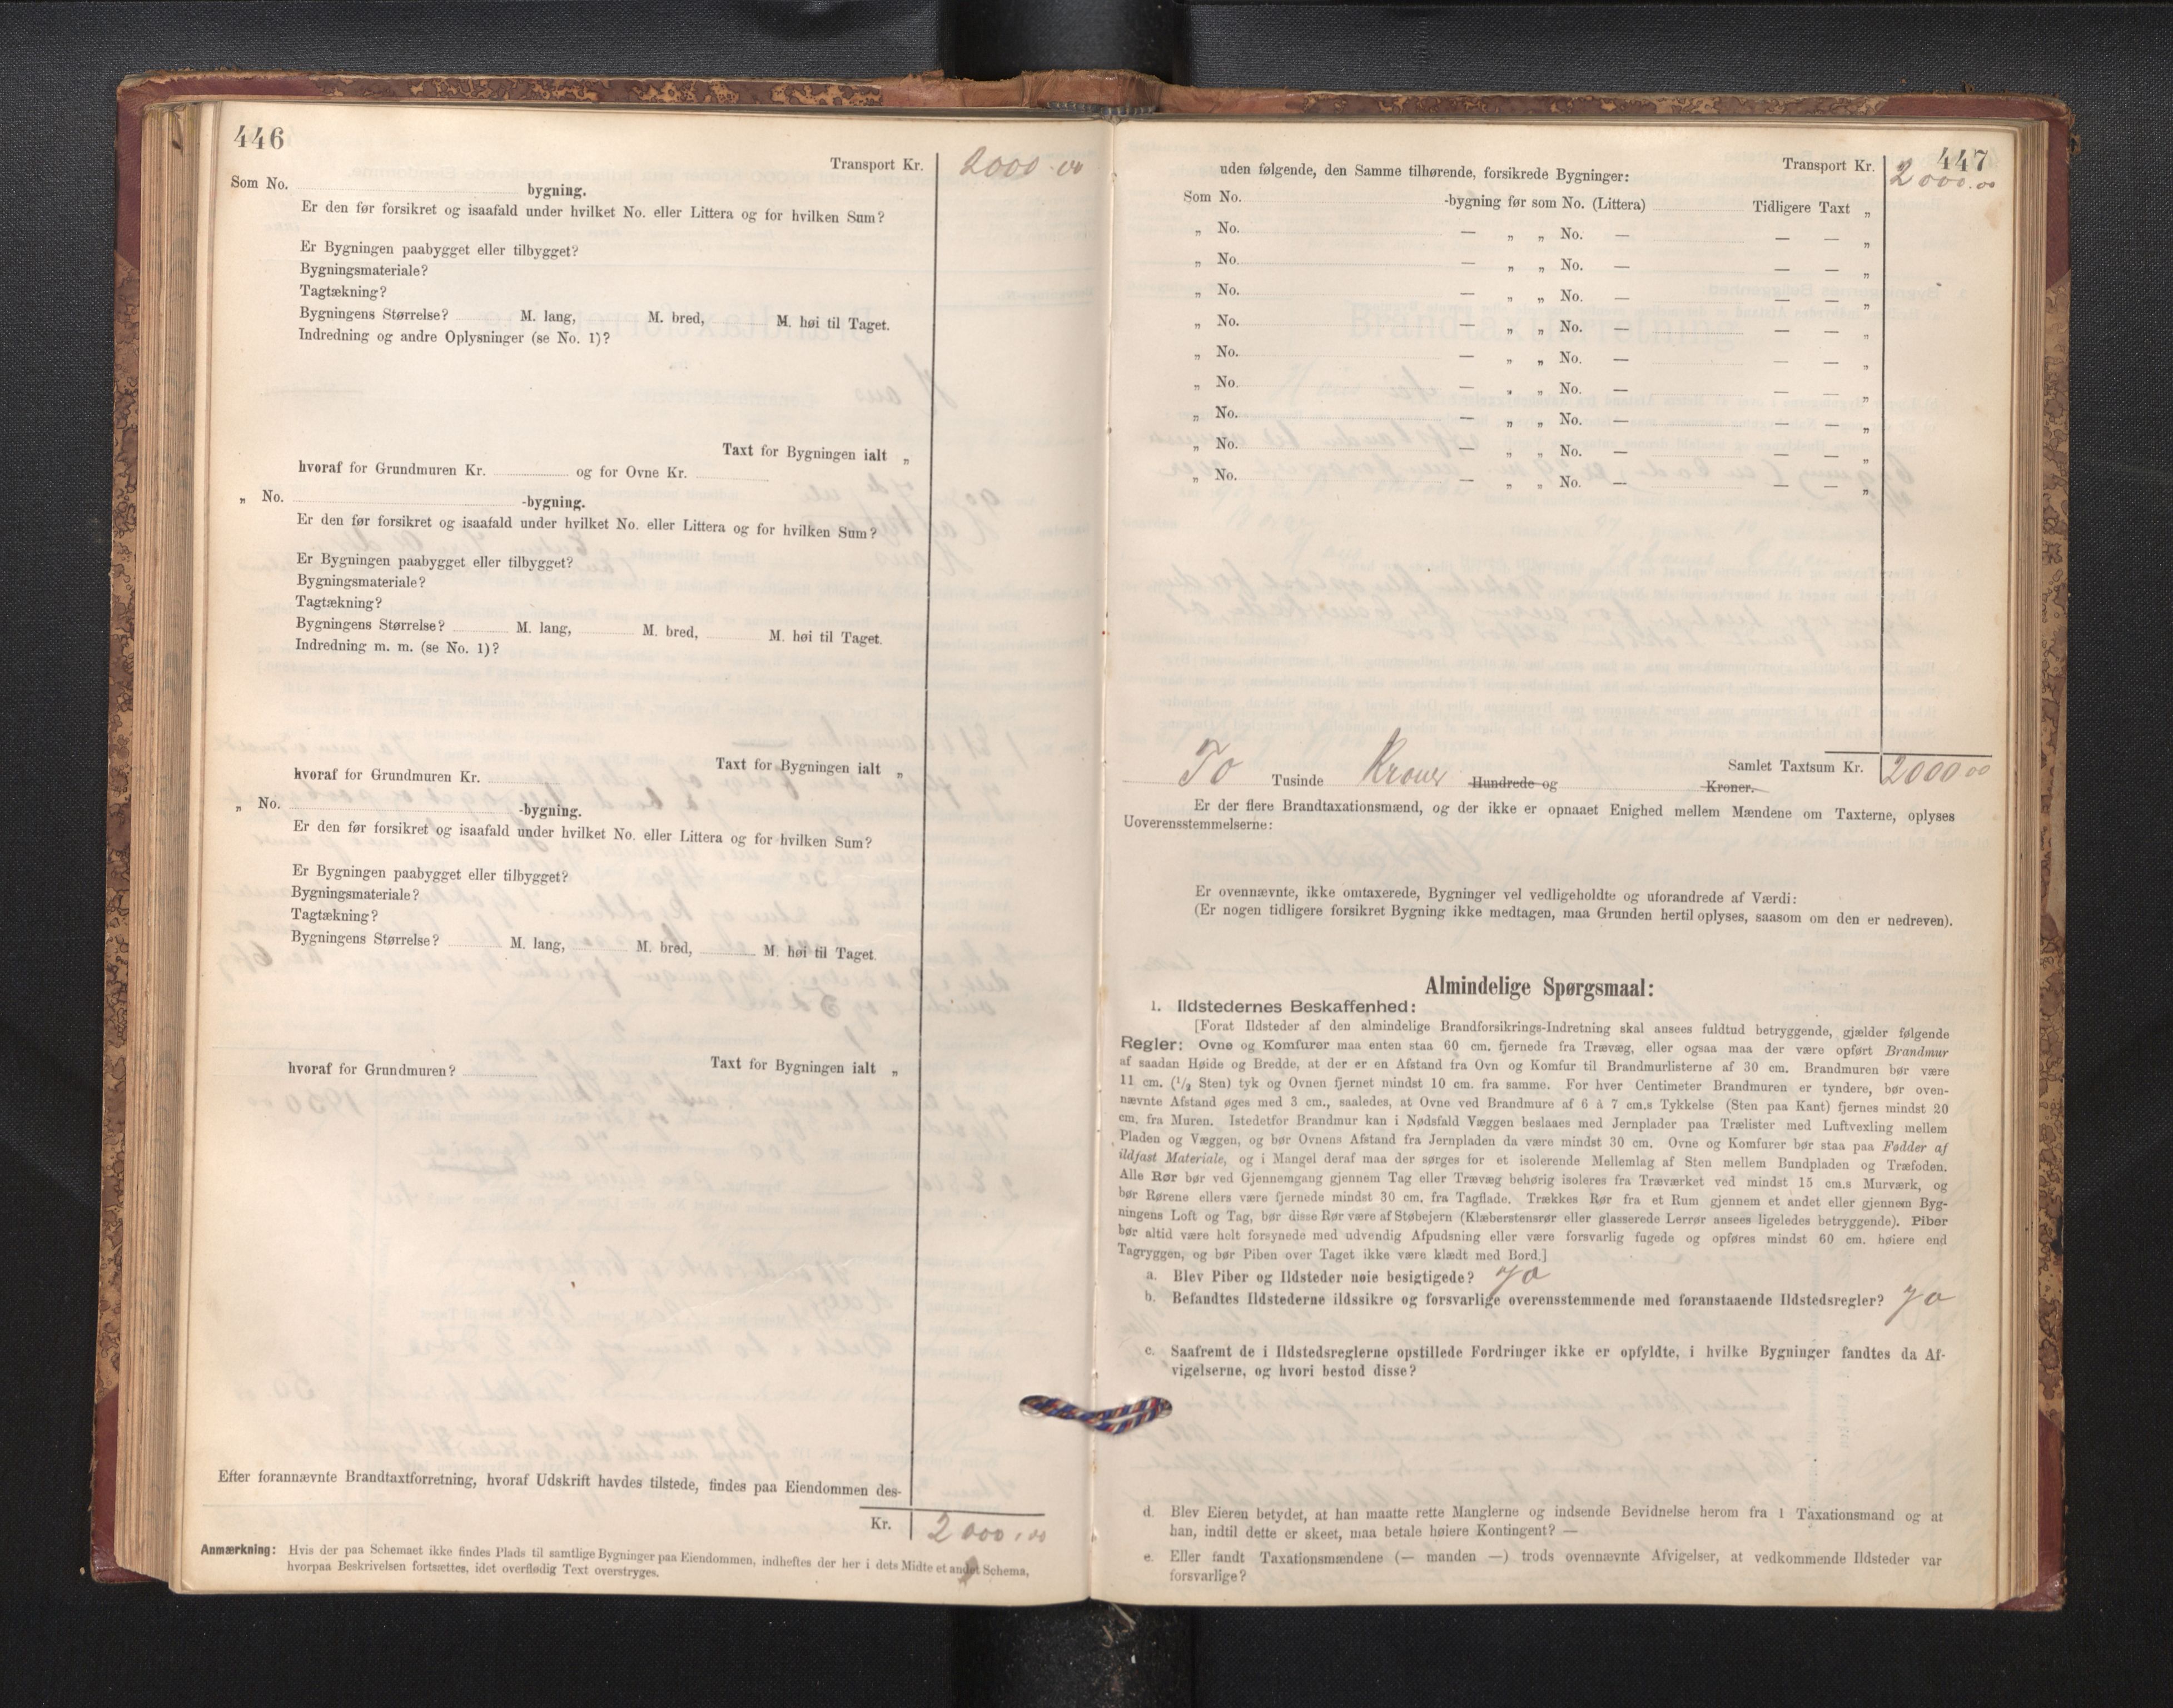 446
Transport Kr. 2000.00
Som No. bygning.
Er den før forsikret og isaafald under hvilket No. eller Littera og for hvilken Sum?
Er Bygningen paabygget eller tilbygget?
Bygningsmateriale?
Tagtækning?
Bygningens Størrelse? M. lang, M. bred, M. høi til Taget.
Indredning og andre Oplysninger (se No. 1)?
Taxt for Bygningen ialt „
hvoraf for Grundmuren Kr. og for Ovne Kr.
„ No. -bygning.
Er den før forsikret og isaafald under hvilket No. eller Littera og for hvilken Sum?
Er Bygningen paabygget eller tilbygget?
Bygningsmateriale?
Tagtækning?
Bygningens Størrelse? M. lang, M. bred, M. høi til Taget.
Indredning m. m. (se No. 1)?
Taxt for Bygningen ialt „
hvoraf for Grundmuren Kr.
„ No. -bygning.
Er den før forsikret og isaafald under hvilket No. eller Littera og for hvilken Sum?
Er Bygningen paabygget eller tilbygget?
Bygningsmateriale?
Tagtækning?
Bygningens Størrelse? M. lang, M. bred, M. høi til Taget.
Taxt for Bygningen ialt „
hvoraf for Grundmuren?
Efter forannævnte Brandtaxtforretning, hvoraf Udskrift havdes tilstede, findes paa Eiendommen des-
Kr. 2000.00
Anmærkning: Hvis der paa Schemaet ikke findes Plads til samtlige Bygninger paa Eiendommen, indheftes der her i dets Midte et andet Schema,
hvorpaa Beskrivelsen fortsættes, idet overflødig Text overstryges.
447
Transport Kr. 2000.00
uden følgende, den Samme tilhørende, forsikrede Bygninger:
Som No. -bygning før som No. (Littera) Tidligere Taxt „
„ No. — „ „ No. — — — „
„ No. — „ „ No. — — — „
„ No. — „ „ No. — — — „
„ No. — „ „ No. — — — „
„ No. — „ „ No. — — — „
„ No. — „ „ No. — — — „
„ No. — „ „ No. — — — „
„ No. — „ „ No. — — — „
„ No. — „ „ No. — — — „
Samlet Taxtsum Kr. 2000 00
To Tusinde Kroner Hundrede og Kroner.
Er der flere Brandtaxationsmænd, og der ikke er opnaaet Enighed mellem Mændene om Taxterne, oplyses
Uoverensstemmelserne:
Er ovennævnte, ikke omtaxerede, Bygninger vel vedligeholdte og uforandrede af Værdi:
(Er nogen tidligere forsikret Bygning ikke medtagen, maa Grunden hertil oplyses, saasom om den er nedreven).
Almindelige Spørgsmaal:
1. Ildstedernes Beskaffenhed:
[Forat Ildsteder af den almindelige Brandforsikrings-Indretning skal ansees fuldtud betryggende, gjælder følgende
Regler: Ovne og Komfurer maa enten staa 60 cm. fjernede fra Trævæg, eller ogsaa maa der være opført Brandmur
af saadan Høide og Bredde, at der er en Afstand fra Ovn og Komfur til Brandmurlisterne af 30 cm. Brandmuren bør være
11 cm. (1/2 Sten) tyk og Ovnen fjernet mindst 10 cm. fra samme. For hver Centimeter Brandmuren er tyndere, bør oven-
nævnte Afstand øges med 3 cm., saaledes, at Ovne ved Brandmure af 6 à 7 cm.s Tykkelse (Sten paa Kant) fjernes mindst 20
cm. fra Muren. Istedetfor Brandmur kan i Nødsfald Væggen beslaaes med Jernplader paa Trælister med Luftvexling mellem
Pladen og Væggen, og bør Ovnens Afstand fra Jernpladen da være mindst 30 cm. Ovne og Komfurer bør staa paa Fødder af
ildfast Materiale, og i Mangel deraf maa der sørges for et isolerende Mellemlag af Sten mellem Bundpladen og Træfoden.
Alle Rør bør ved Gjennemgang gjennem Tag eller Trævæg behørig isoleres fra Træværket ved mindst 15 cm.s Murværk, og
bør Rørene ellers være fjernede mindst 30 cm. fra Tagflade. Trækkes Rør fra et Rum gjennem et andet eller gjennem Byg-
ningens Loft og Tag, bør disse Rør være af Støbejern (Klæberstensrør eller glasserede Lerrør ansees ligeledes betryggende). Piber
bør altid være helt forsynede med udvendig Afpudsning eller være forsvarlig fugede og opføres mindst 60 cm. høiere end
Tagryggen, og bør Piben over Taget ikke være klædt med Bord.]
a. Blev Piber og Ildsteder nøie besigtigede? Ja
b. Befandtes Ildstederne ildssikre og forsvarlige overensstemmende med foranstaaende Ildstedsregler? Ja
c. Saafremt de i Ildstedsreglerne opstillede Fordringer ikke er opfyldte, i hvilke Bygninger fandtes da Af-
vigelserne, og hvori bestod disse?
d. Blev Eieren betydet, at han maatte rette Manglerne og indsende Bevidnelse herom fra 1 Taxationsmand og at
han, indtil dette er skeet, maa betale høiere Kontingent? —
e. Eller fandt Taxationsmændene (— manden —) trods ovennævnte Afvigelser, at vedkommende Ildsteder var
forsvarlige?